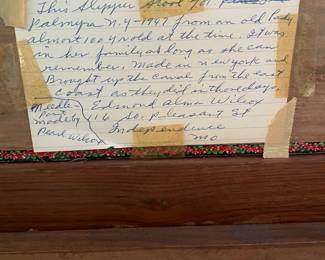 This Slipper Stool got
Palmyra N.Y - 1947 from an old Lady
almost 100 y old at the time. It was
in her family as long as she can
remember. Made in new york and
Brought up the canal from the east
coast as they did in those days.
Needle Point made by Pearl Wilcox
Edmond Alma Wilcox
116 So. Pleasant St
Independence
Mo